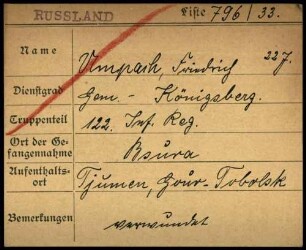 RUSSLAND Liste 796/33.
Name Umpach, Friedrich 22 J.
Dienstgrad Gem. - Königsberg.
Truppenteil 122. Inf. Reg.
Ort der Ge-
fangennahme Bsura
Aufenthalts-
ort Tjumen, Gour. Tobolsk
Bemerkungen verwundet